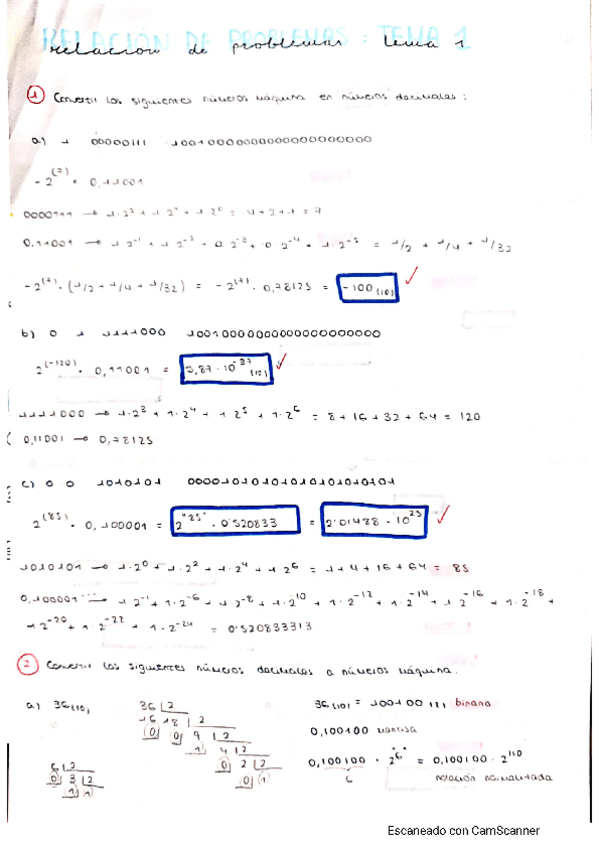 RELACIÓN DE PROBLEMAS: TEMA 1
relacion de problemas tema 1
1 Convertir los siguientes números máquina en números decimales:
a) 1 00000111 10010000000000000000000
-2^(7) · 0,11001
0000111 → 1·2² + 1·2¹ + 1·2⁰ = 4+2+1 = 7
0,11001 → 1·2⁻¹ + 1·2⁻² + 0·2⁻³ + 0·2⁻⁴ + 1·2⁻⁵ = 1/2 + 1/4 + 1/32
-2^(7) · (1/2 + 1/4 + 1/32) = -2^(7) · 0,78125 = -100 (10)
b) 0 1 1111000 10010000000000000000000
2^(-120) · 0,11001 = 5,87 · 10^-37 (10)
1111000 → 1·2³ + 1·2⁴ + 1·2⁵ + 1·2⁶ = 8 + 16 + 32 + 64 = 120
0,11001 → 0,78125
c) 0 0 1010101 00001010101010101010101
2^(85) · 0,100001 = 2^"85" · 0'520833 = 2'01488 · 10^25
1010101 → 1·2⁰ + 1·2² + 1·2⁴ + 1·2⁶ = 1+4+16+64 = 85
0,100001... → 1·2⁻¹ + 1·2⁻⁶ + 1·2⁻⁸ + 1·2^10 + 1·2^-12 + 1·2^-14 + 1·2^-16 + 1·2^-18 +
1·2^-20 + 1·2^-22 + 1·2^-24 = 0'520833313
2 Convertir los siguientes números decimales a números máquina.
a) 36(10)
36 |2
16 18 |2
0 0 9 |2
1 4 |2
0 2 |2
0 1
6 |2
0 3 |2
1 1
36(10) = 100100 (2) binario
0,100100 mantisa
0,100100 · 2^"6" = 0,100100 · 2^110
6 notación normalizada
Escaneado con CamScanner